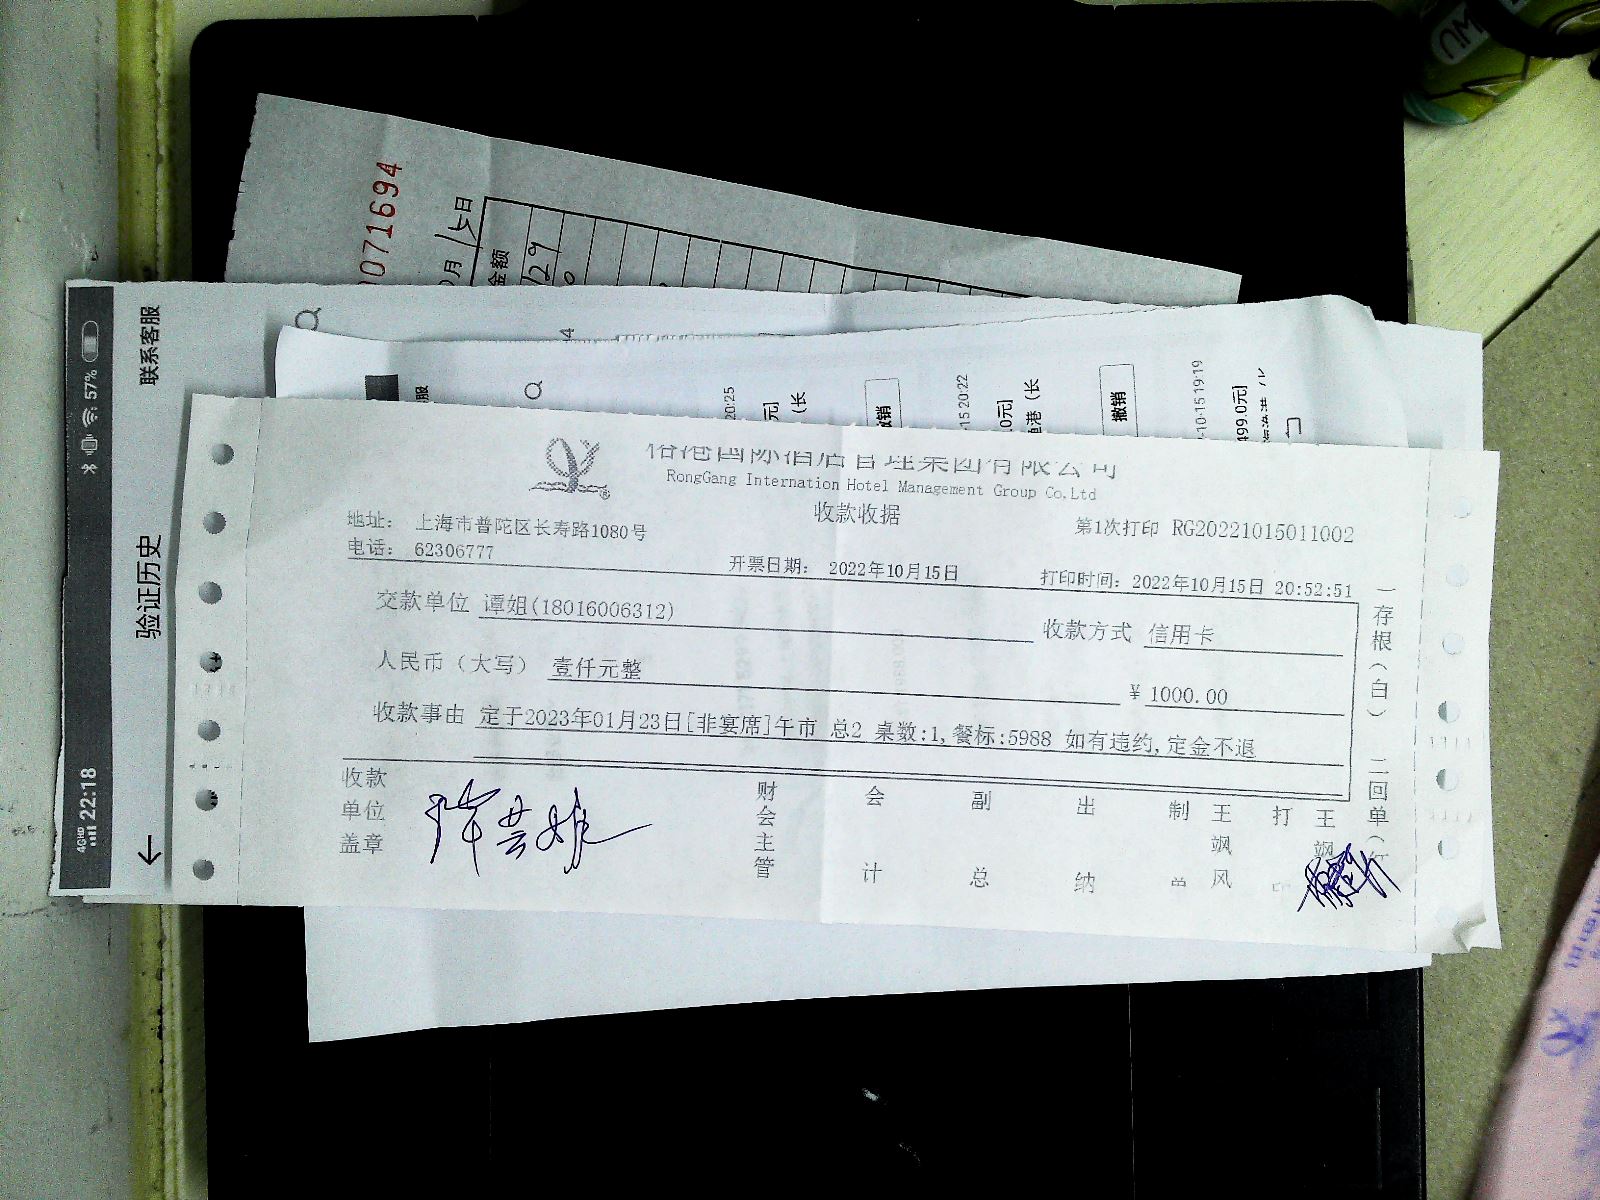 0071694
月15日
金额
129
联系客服
57%
验证历史
22:18
20:25
元]
(长
撤销
15 20:22
.0元]
港 (长
撤销
-10-15 19:19
499.0元]
裕港国际酒店管理集团有限公司
RongGang Internation Hotel Management Group Co.Ltd
收款收据
地址: 上海市普陀区长寿路1080号
第1次打印 RG20221015011002
电话: 62306777
开票日期: 2022年10月15日
打印时间: 2022年10月15日 20:52:51
交款单位 谭姐(18016006312)
收款方式 信用卡
人民币(大写) 壹仟元整
¥ 1000.00
收款事由 定于2023年01月23日[非宴席]午市 总2 桌数:1,餐标:5988 如有违约,定金不退
一存根(白) 二回单(
收款单位盖章
财会主管
会计
副总
出纳
制单
王飒风
打印
王飒